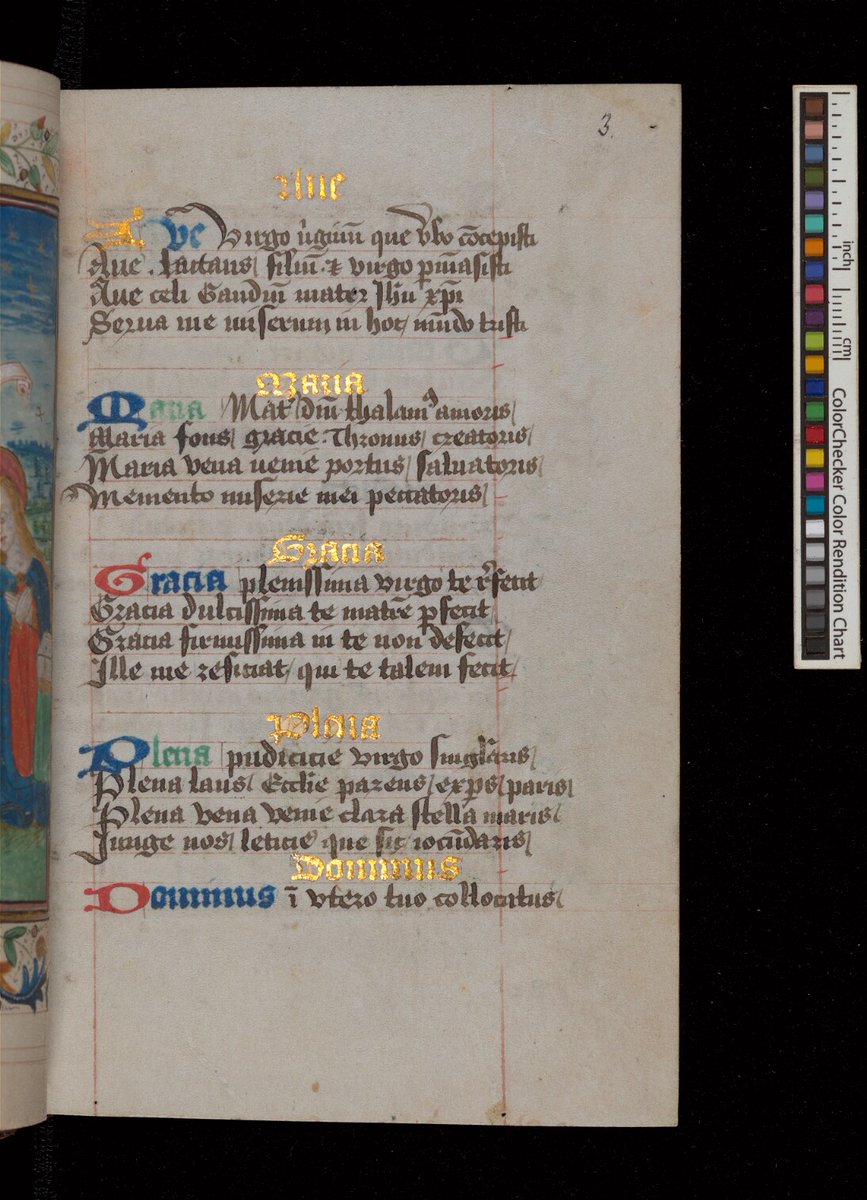 3.
Aue
Ave Virgo v̄giūm que v̄bo cōcepisti
Aue. lactans/ filiū ⁊ virgo p̄māsisti
Aue celi Gaudiū mater Jh̄u xp̄i
Serua me miserum in hoc/ mūdo tristi
Maria
Maria Mat̄ /diū thalamꝰ amoris/
Maria fons/ gracie. Thronus/ creatoris/
Maria vena uenie portus/ saluatoris/
Memento miserie mei peccatoris/
Gracia
Gracia plenissima virgo te r̄fecit
Gracia dulcissima te matrē ꝑfecit/
Gracia firmissima in te non defecit/
Ille me reficiat/ qui te talem fecit/
Plena
Plena pudicicie virgo singl̄aris/
Plena laus/ Ecclīe parens/ exp̄s/ paris/
Plena vena venie clara stella maris/
Junge nos/ leticie que sic iocūdaris/
Dominus
Dominus ī vtero tuo collocatus/
inch
cm
ColorChecker Color Rendition Chart